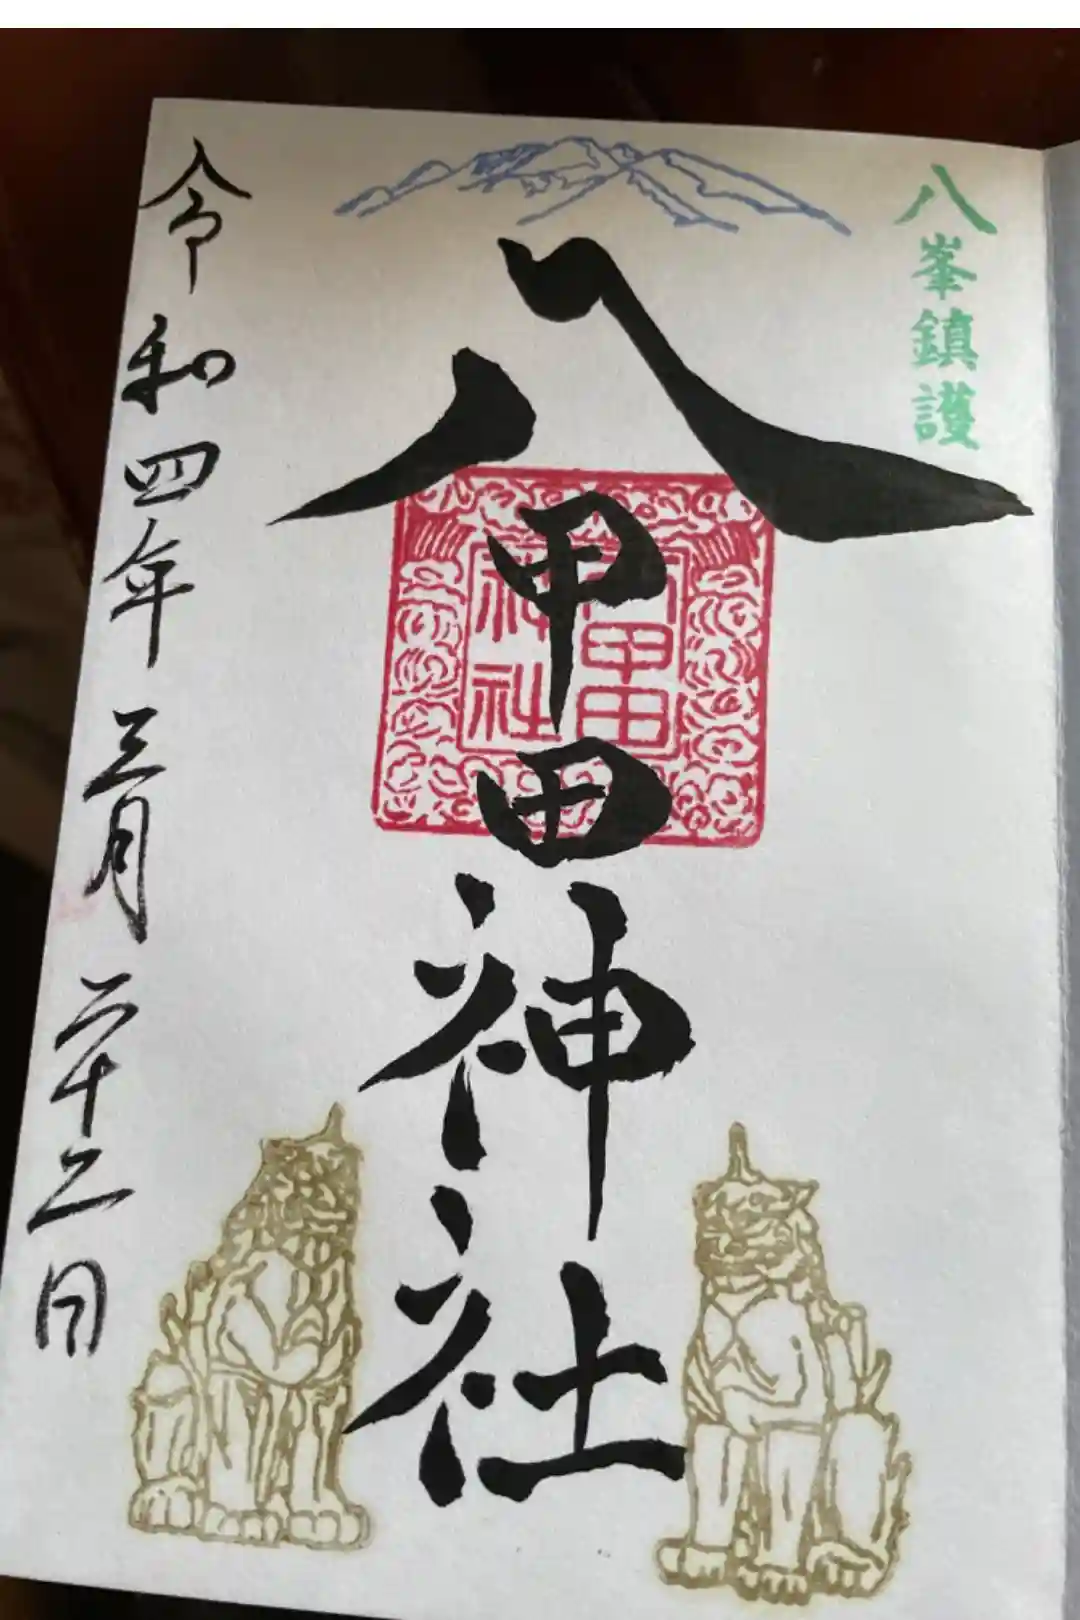 八峯鎮護
八甲田神社
八甲田
神社
令和四年三月二十二日